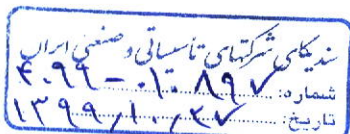 سندیکای شرکتهای تأسیساتی و صنعتی ایران
شماره: ۴۰۹۹-۰۱۰۸۹۷
تاریخ: ۱۳۹۹/۱۰/۲۷